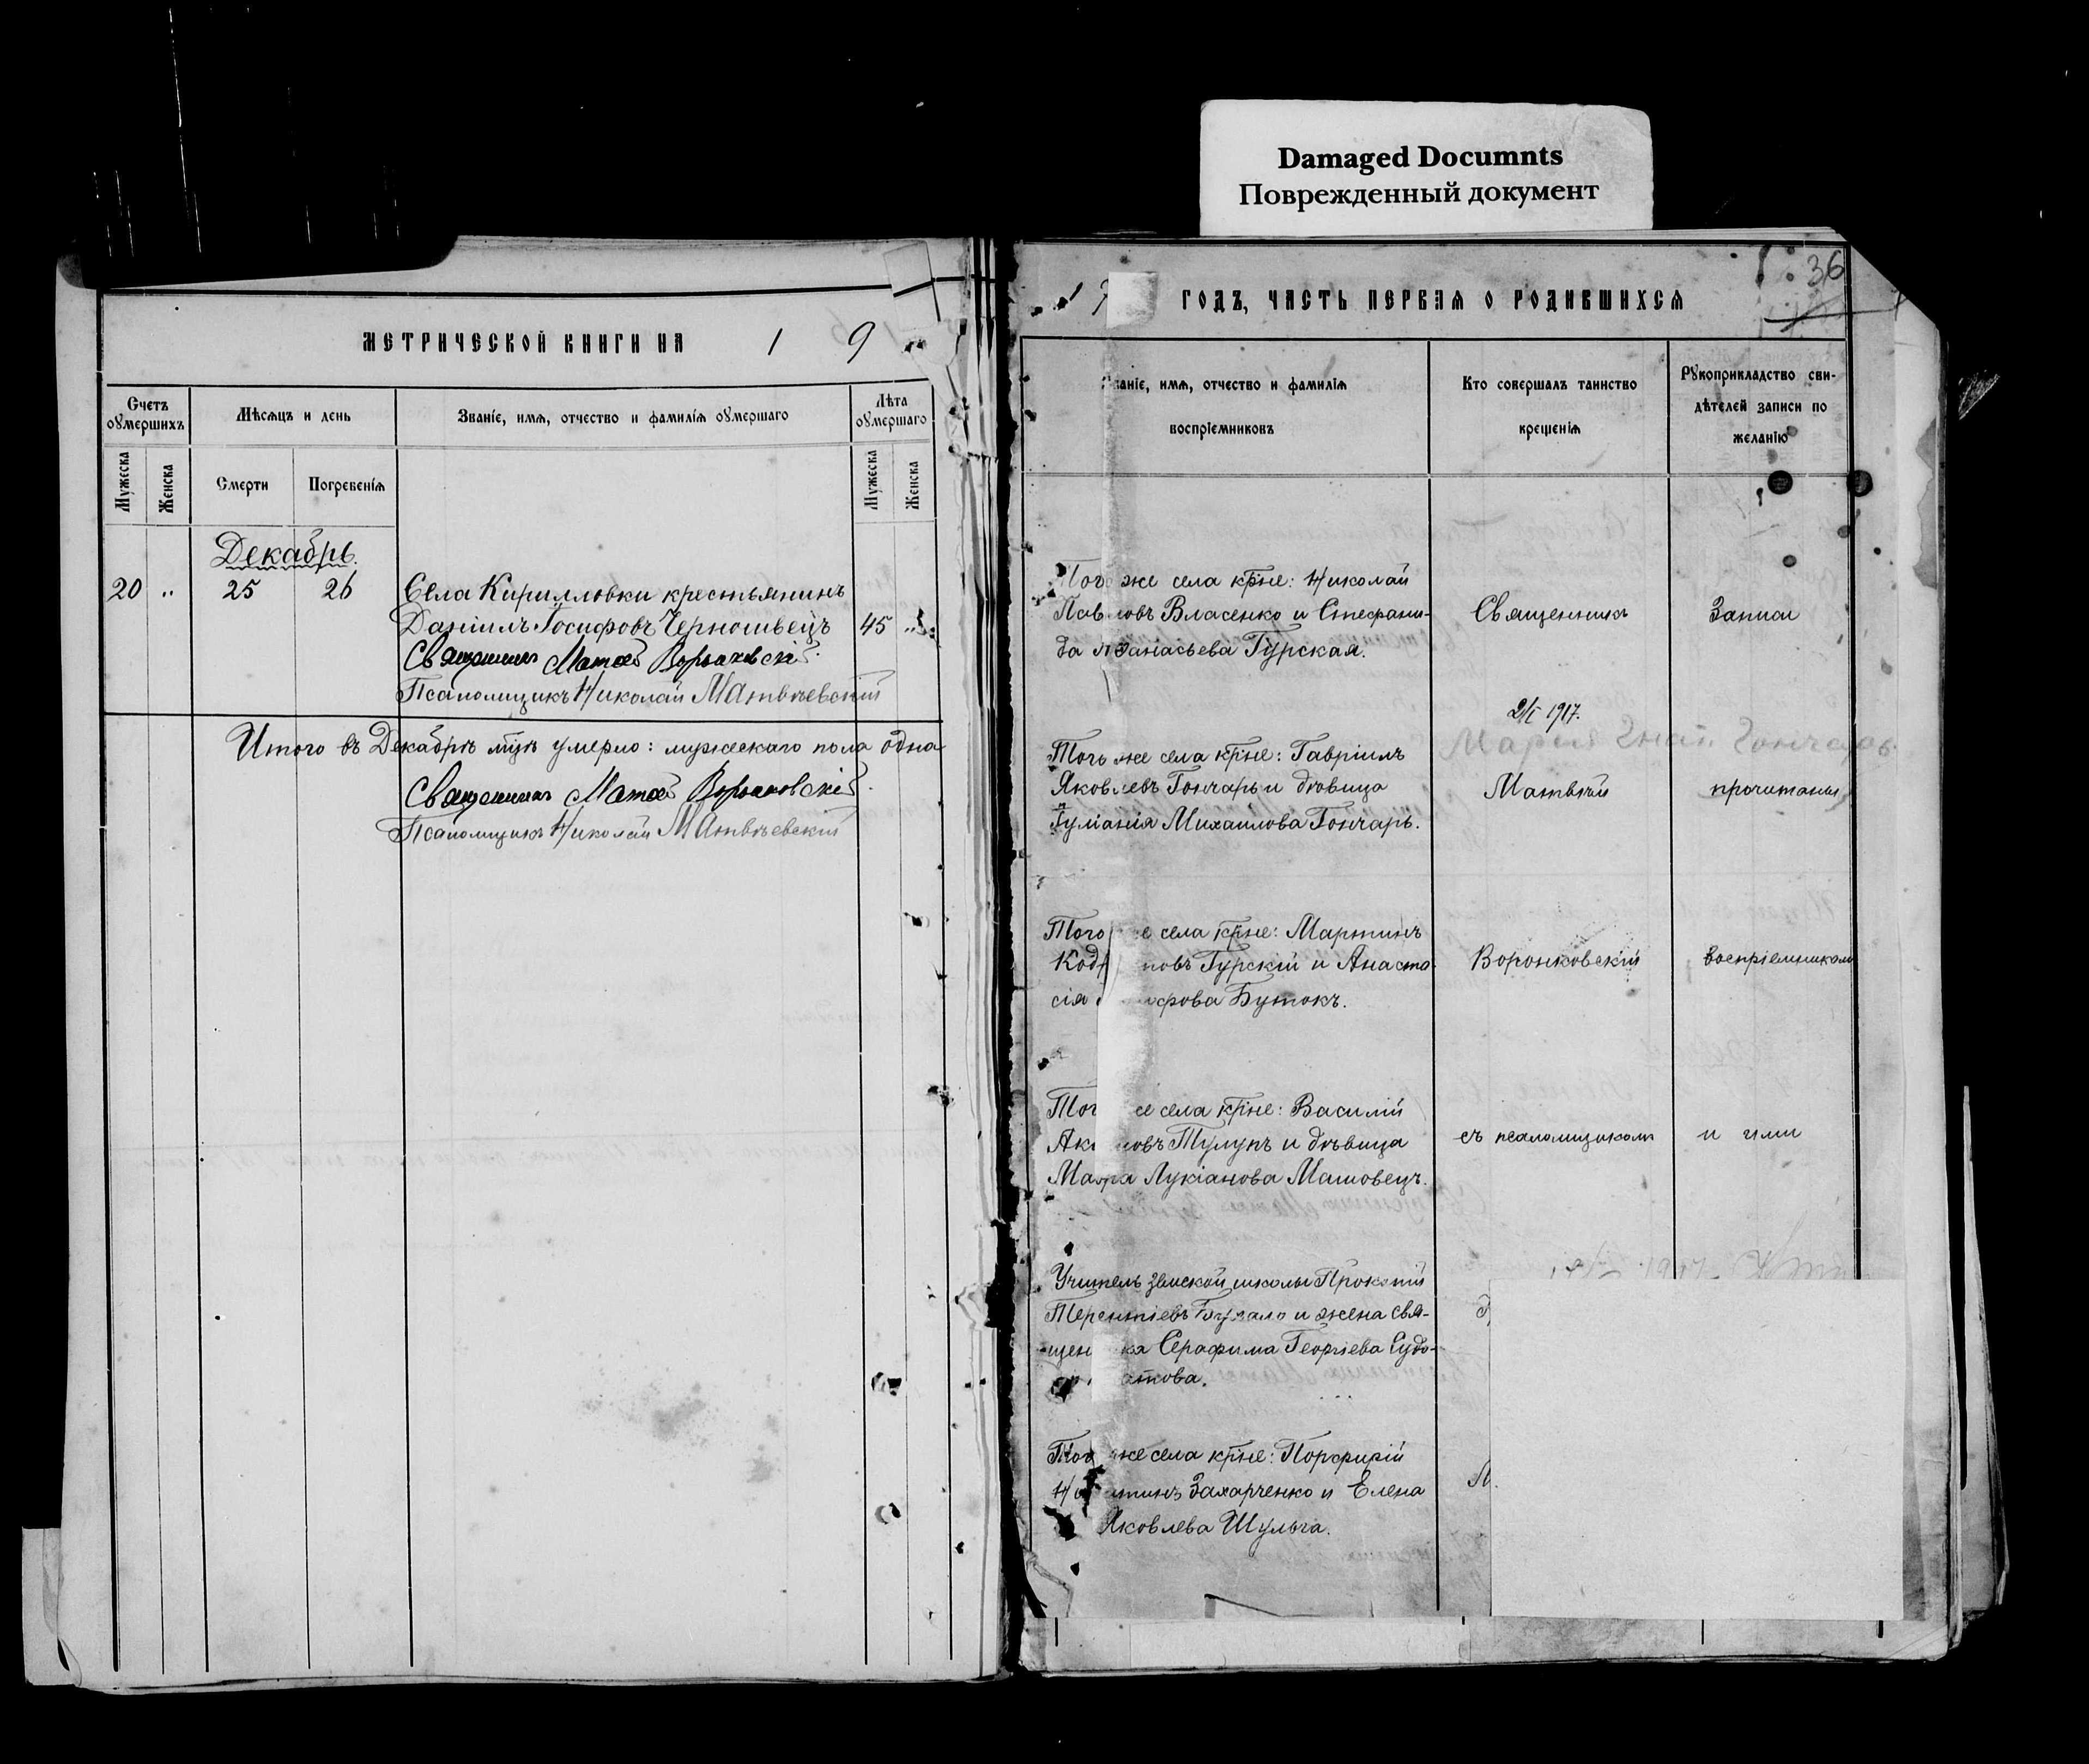 Damaged Documnts
Поврежденный документ
МЕТРИЧЕСКОЙ КНИГИ НА 1 9
Счетъ оумершихъ
Мѣсяцъ и день
Званіе, имя, отчество и фамилія оумершаго
Лѣта оумершаго
Мужеска
Женска
Смерти
Погребенія
Мужеска
Женска
Декабрь.
20 " 25 26 Села Кирилловки крестьянинъ
Даніилъ Іосифовъ Черношвецъ 45 "
Священникъ Матѳей Воронковскій
Псаломщикъ Николай Матвѣевскій
Итого въ Декабрѣ мцѣ умерло: мужескаго пола одна
Священникъ Матѳей Воронковскій
Псаломщикъ Николай Матвѣевскій
36
ГОДЪ, ЧАСТЬ ПЕРВАЯ О РОДИВШИХСЯ
Званіе, имя, отчество и фамилія
воспріемниковъ
Кто совершалъ таинство
крещенія
Рукоприкладство сви-
дѣтелей записи по
желанію
Того же села крне: Николай
Павловъ Власенко и Стефани-
да Турская.
Священникъ
Записи
1917.
Мария Гнат. Гончарь
Того же села крне: Гавріилъ
Яковлевъ Гончарь и дѣвица
Іуліанія Михаилова Гончарь.
Матвѣй
прочитаны
Того же села крне: Мартинъ
Турскій и Анаста-
сія Бутокъ.
Воронковскій
воспріемникамъ
Того же села крне: Василій
Тулупъ и дѣвица
Мавра Лукіанова Машовецъ.
съ псаломщикомъ
и ими
Учитель земской школы Прокопій
Терентіевъ и жена свя-
щенника Серафима Георгіева Судо-
Того же села крне: Порфирій
Захарченко и Елена
Яковлева Шульга.